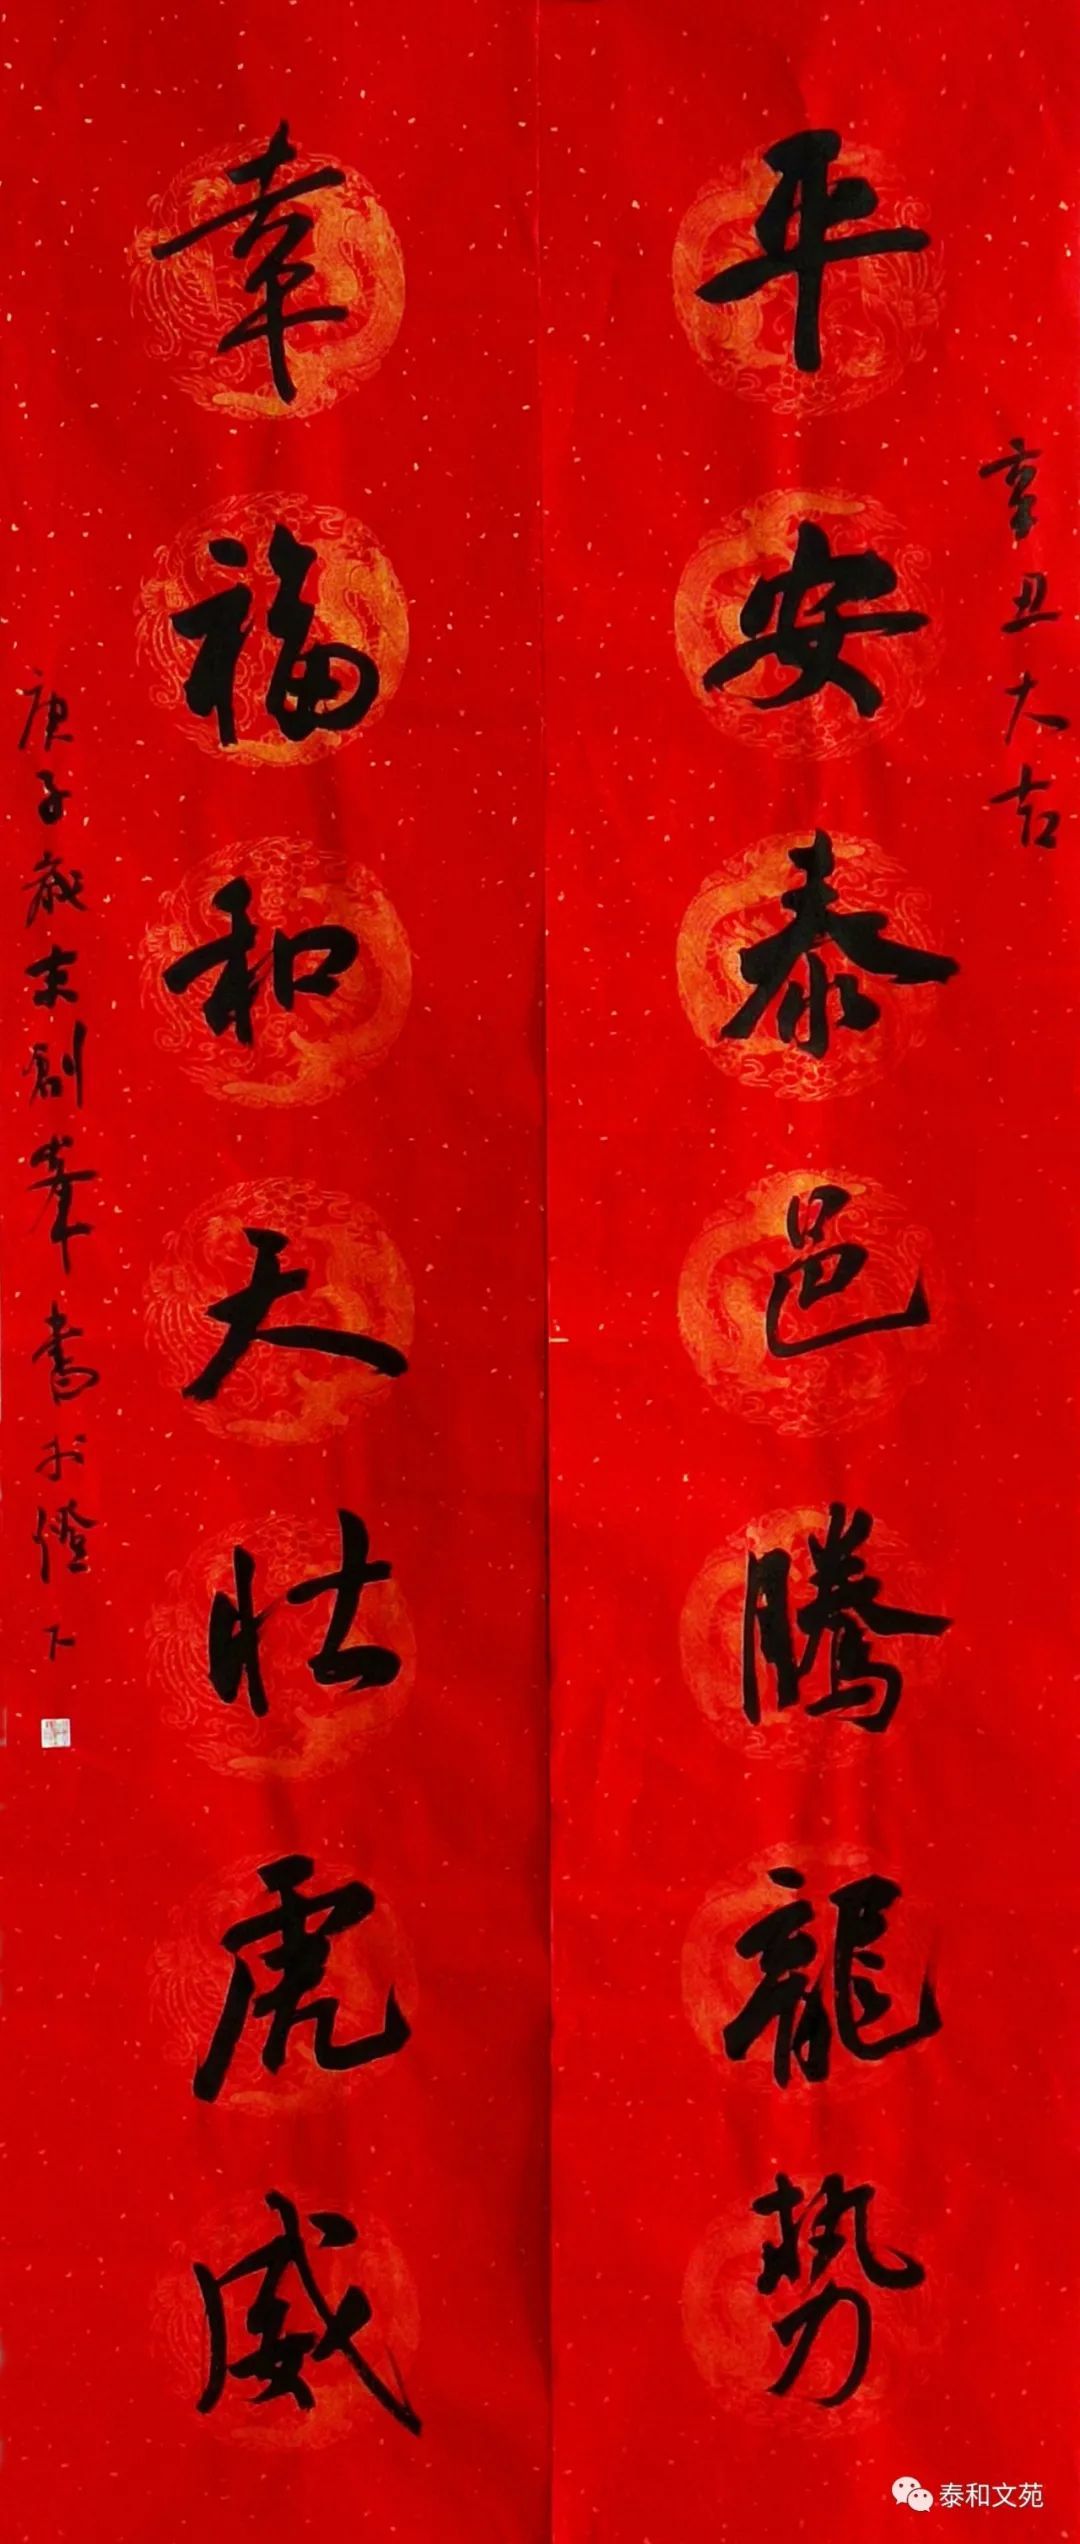 辛丑大吉
平安泰邑騰龍勢
幸福和天壯虎威
庚子歲末創峯書於燈下
泰和文苑